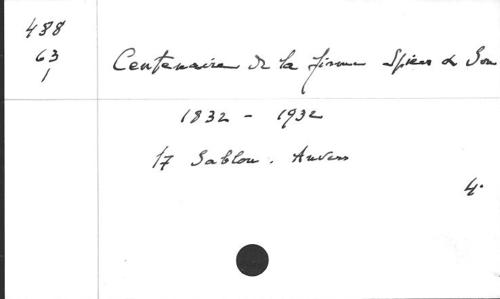 488
63
1
Centenaire de la firme Spiers & Son
1832 - 1932
17 Sablon. Anvers
4°